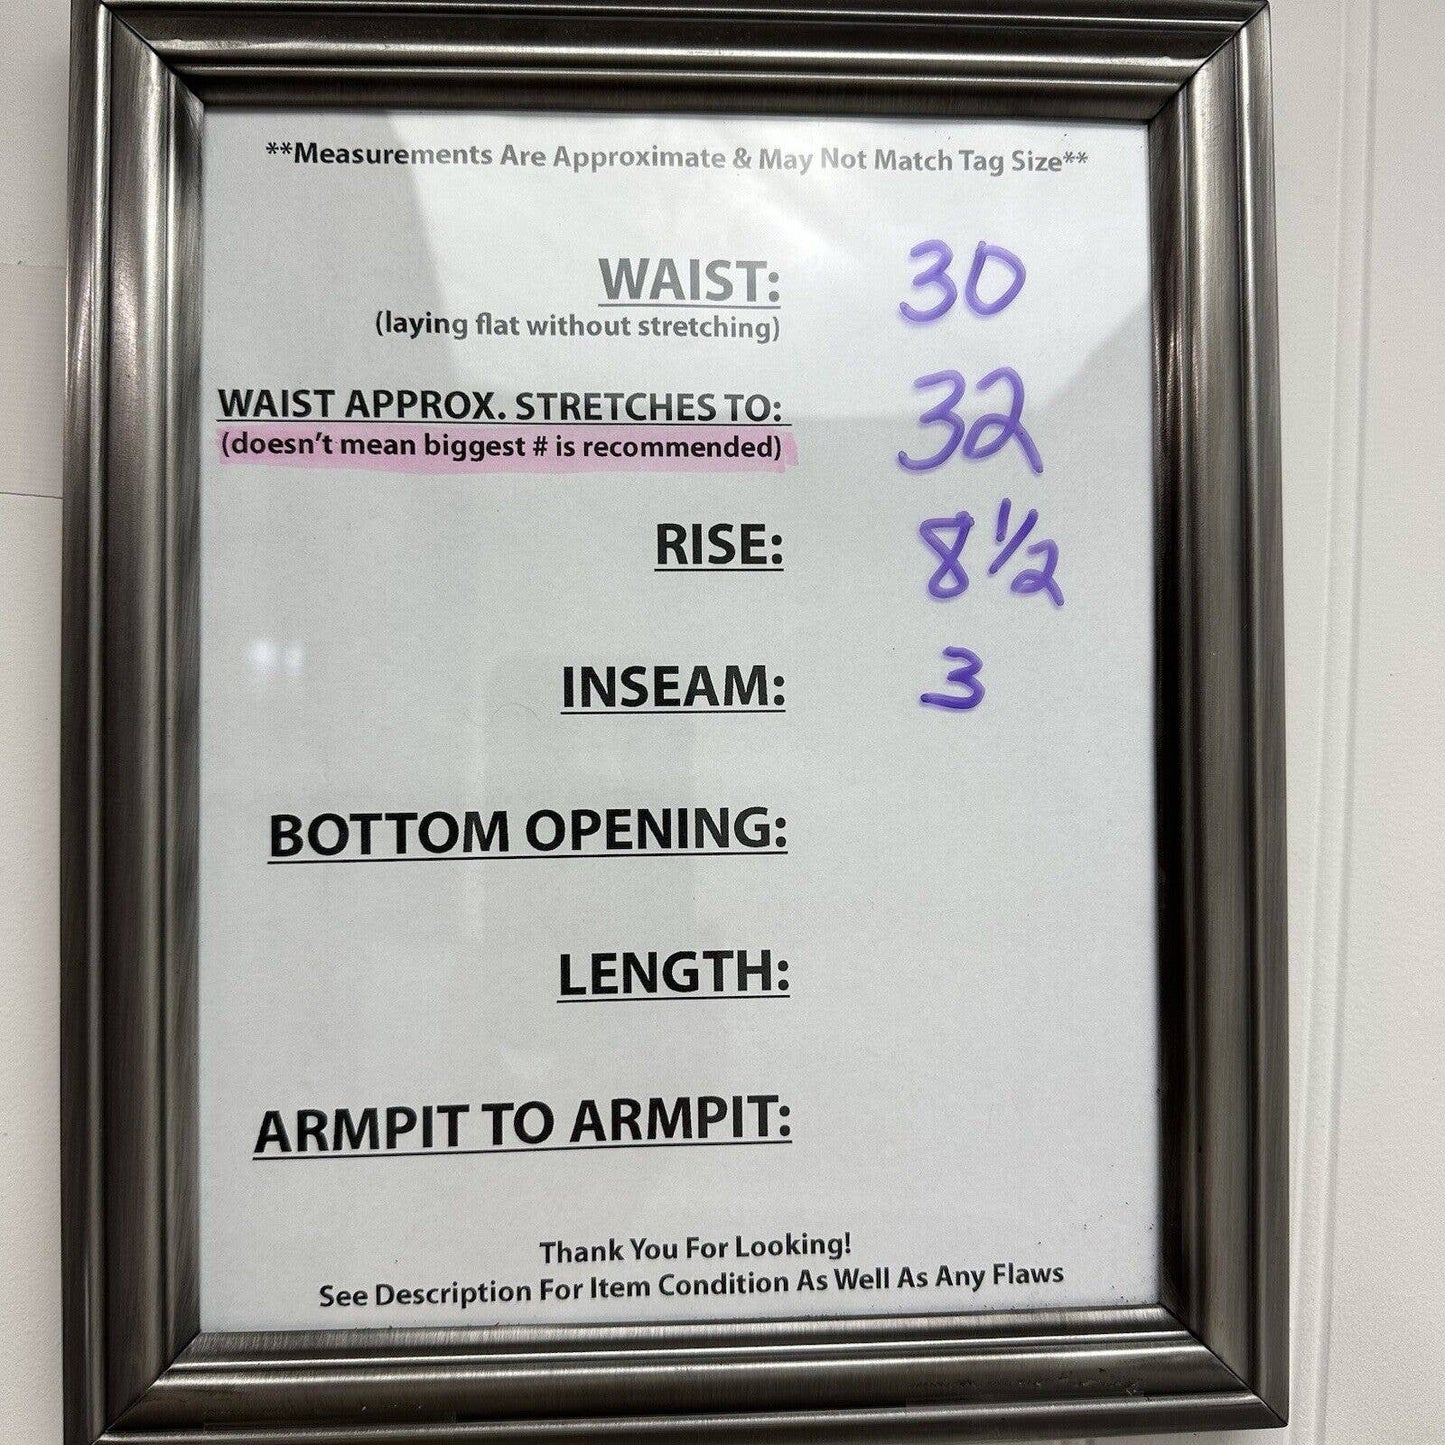 **Measurements Are Approximate & May Not Match Tag Size**
WAIST: 30
(laying flat without stretching)
WAIST APPROX. STRETCHES TO: 32
(doesn't mean biggest # is recommended)
RISE: 8 1/2
INSEAM: 3
BOTTOM OPENING:
LENGTH:
ARMPIT TO ARMPIT:
Thank You For Looking!
See Description For Item Condition As Well As Any Flaws